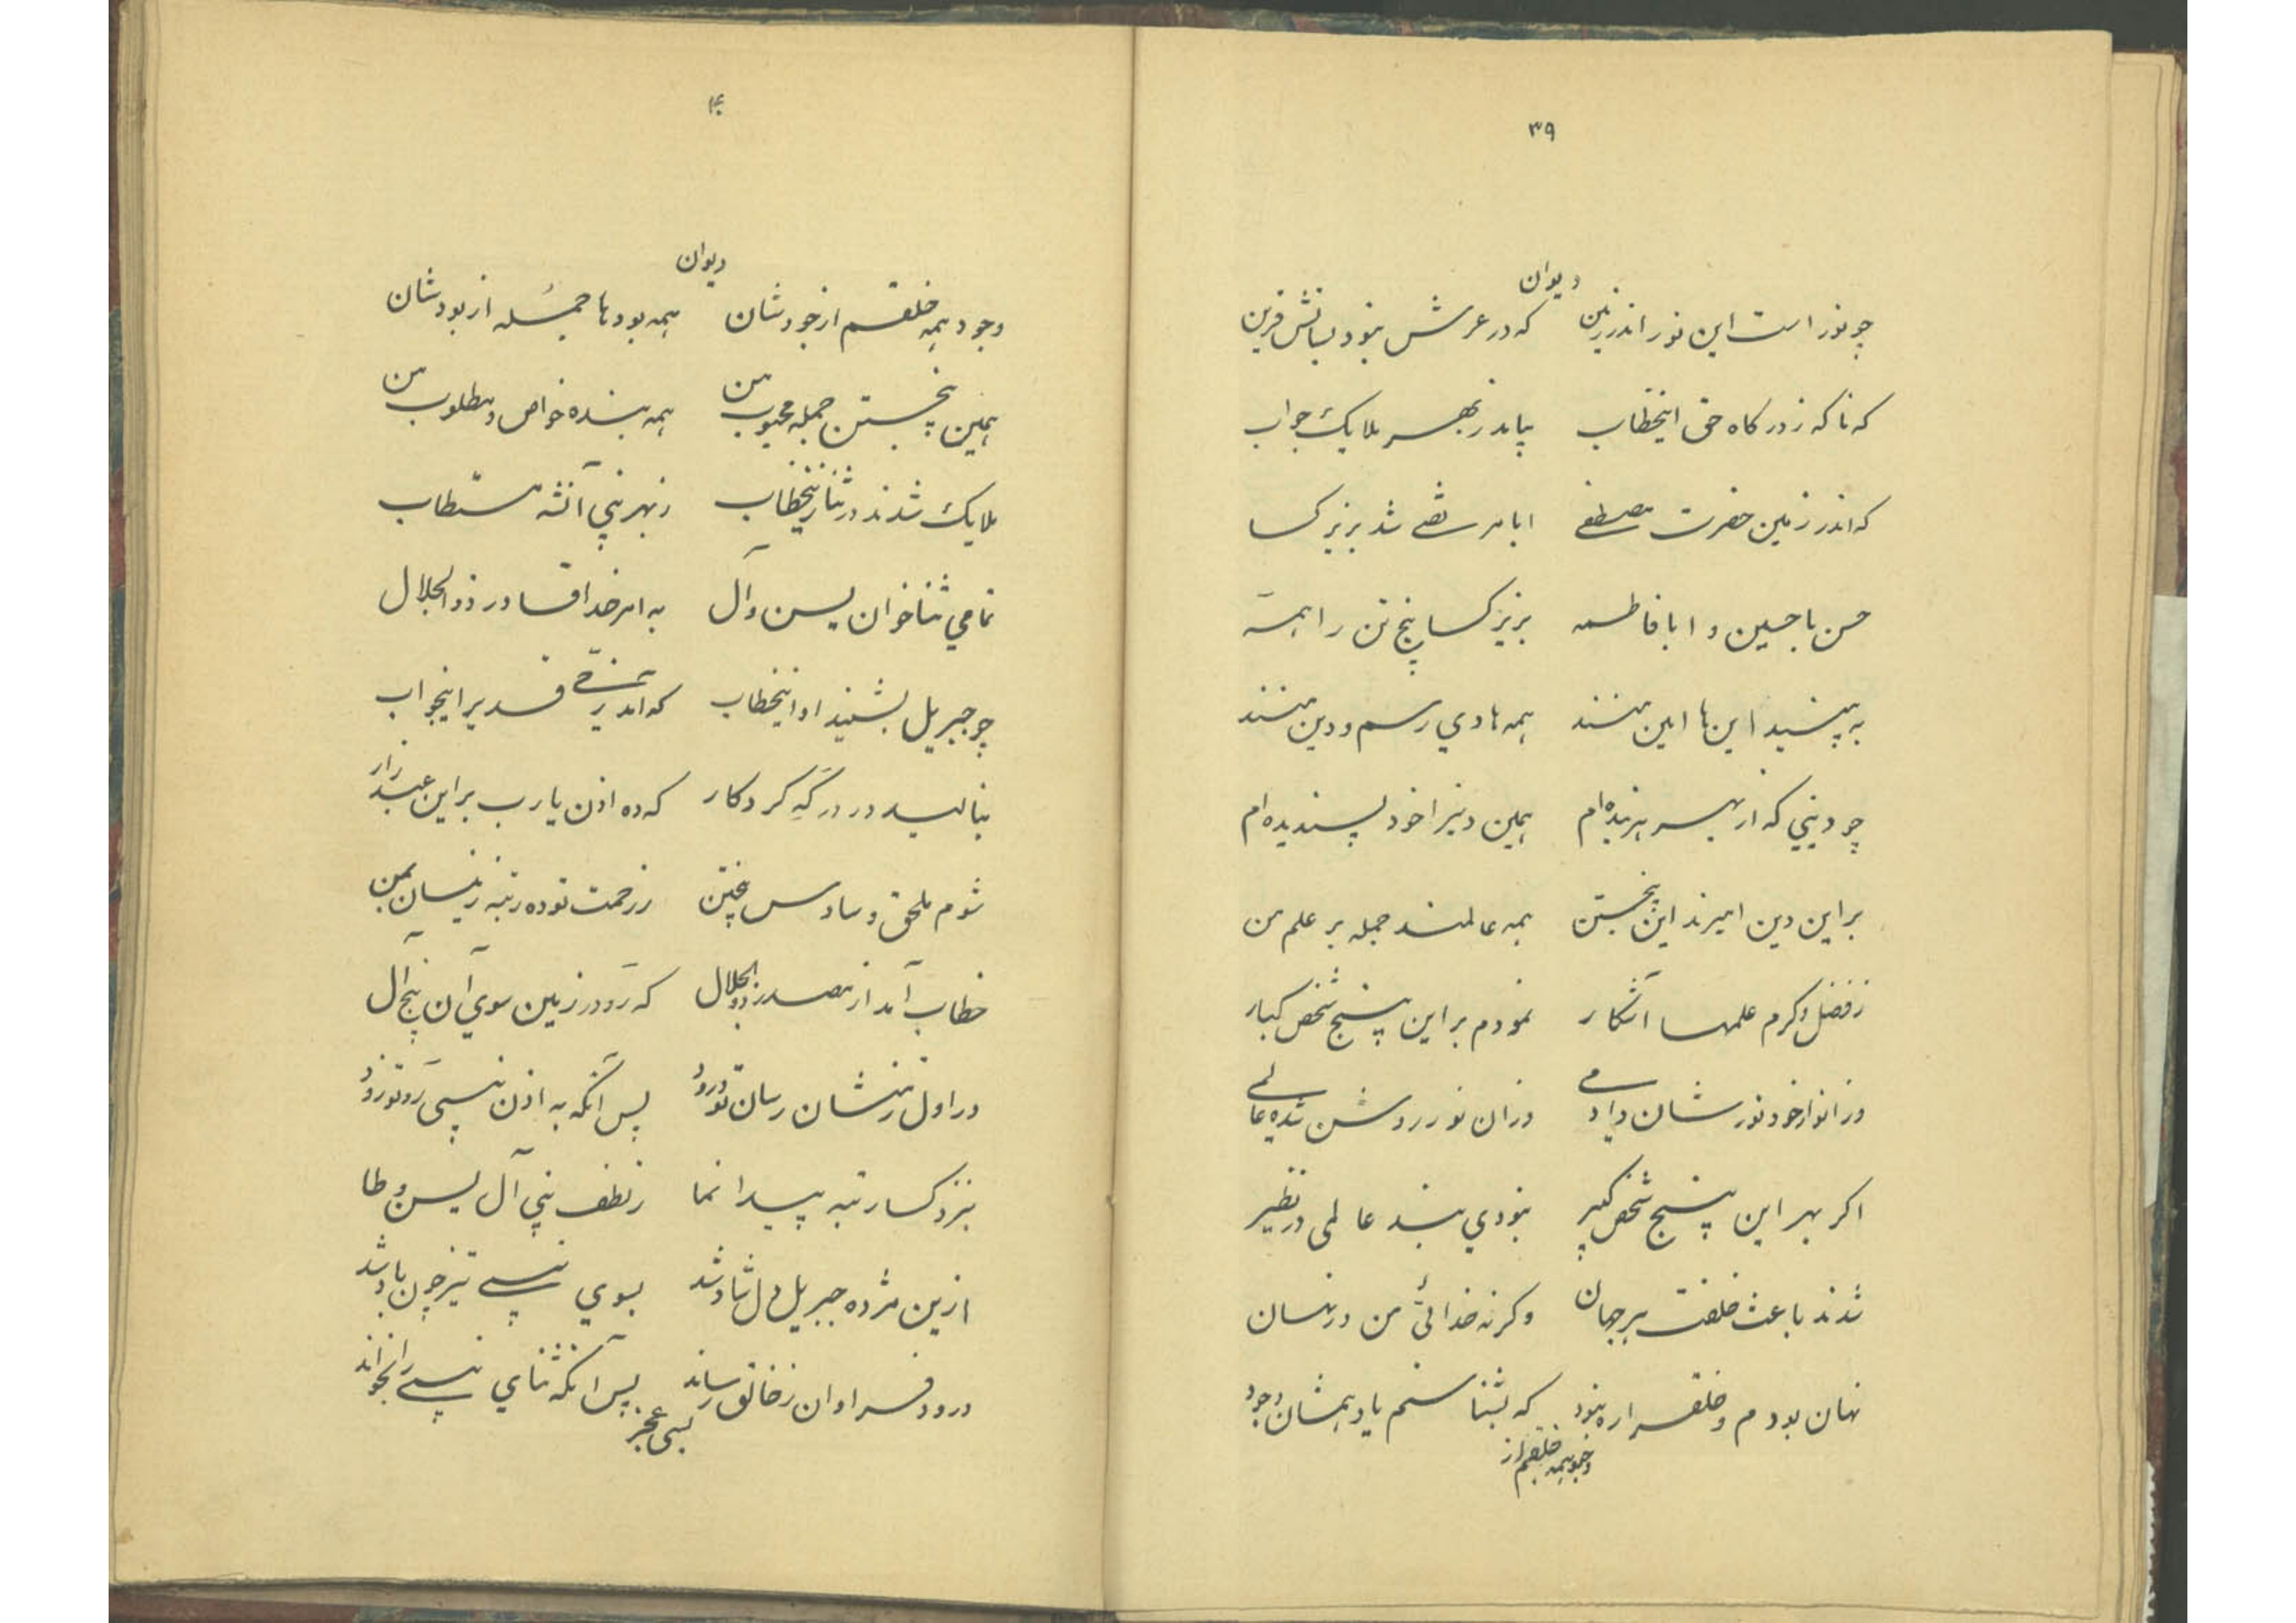 ۳۹
دیوان
چو نور است این نور اندر زمین که در عرش نبود بسانش قرین
که ناکه ز درکاه حق اینخطاب بیامد ز بهر ملایک جواب
که اندر زمین حضرت مصطفے ابا مرتضے شد بزیر کسا
حسن با حسین و ابا فاطمه بزیر کسا پنج تن را همه
به بینید این ها امین منند همه هادي رسم و دین منند
چو دیني که از بهر بنده‌ام همین دین را خود پسندیده‌ام
بر این دین امیرند این پنجتن همه عالمند جمله بر علم من
ز فضل و کرم علمها آشکار نمودم بر این پنج شخص کبار
وز انوار خود نورشان دادمے وز ان نور روشن شده عالمے
اکر بهر این پنج شخص کبیر نبودي نبد عالمی در نظیر
شدند باعث خلقت هر جهان وکرنه خدائیّ من در نهان
نهان بودم و خلق را ره نبود که بشناسنم یا دهمشان وجود
وجود همه خلقم از
۴۰
دیوان
وجود همه خلقم از جودشان همه بودها جمله از بودشان
همین پنجتن جمله محبوب من همه بنده خواص و مطلوب من
ملایک شدند در ثنا زینخطاب ز بهر نبي آنشه مستطاب
تمامي ثنا خوان یسن و آل به امر خدا قادر ذوالجلال
چو جبریل بشنید او اینخطاب که آمد ز حیّ قدیر اینجواب
بنالید در درکه کردکار که ده اذن یا رب بر این عبد زار
شوم ملحق و سادس پنجتن ز رحمت تو ده رتبه زینسان بمن
خطاب آمد از مصدر ذوالجلال که رَو در زمین سوي آن پنج آل
در اول ز منشان رسان تو درود پس آنکه به اذن نبی رَو تو زود
بنزد کسا رتبه پیدا نما ز لطف نبي آل یسن و طا
ازین مژده جبریل دل شاد شد بسوي نبے تیز چون باد شد
درود فراوان ز خالق رساند پس آنکه ثناي نبے را بخواند
بسی عجز